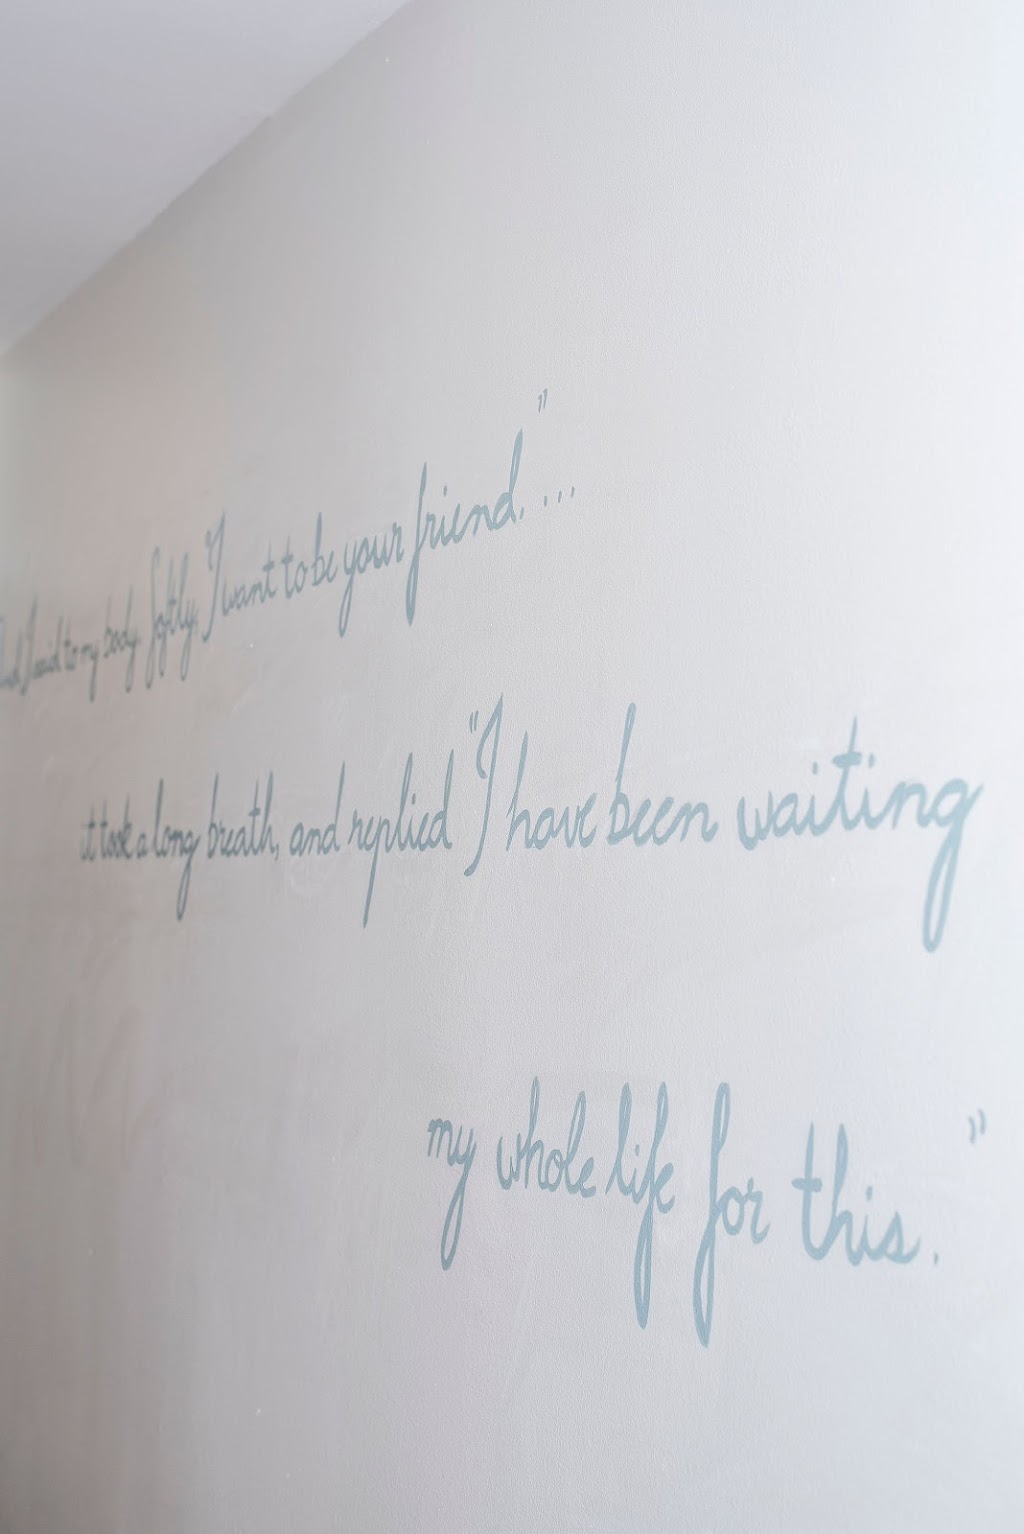 and I said to my body. Softly. I want to be your friend." ...
it took a long breath, and replied "I have been waiting
my whole life for this."